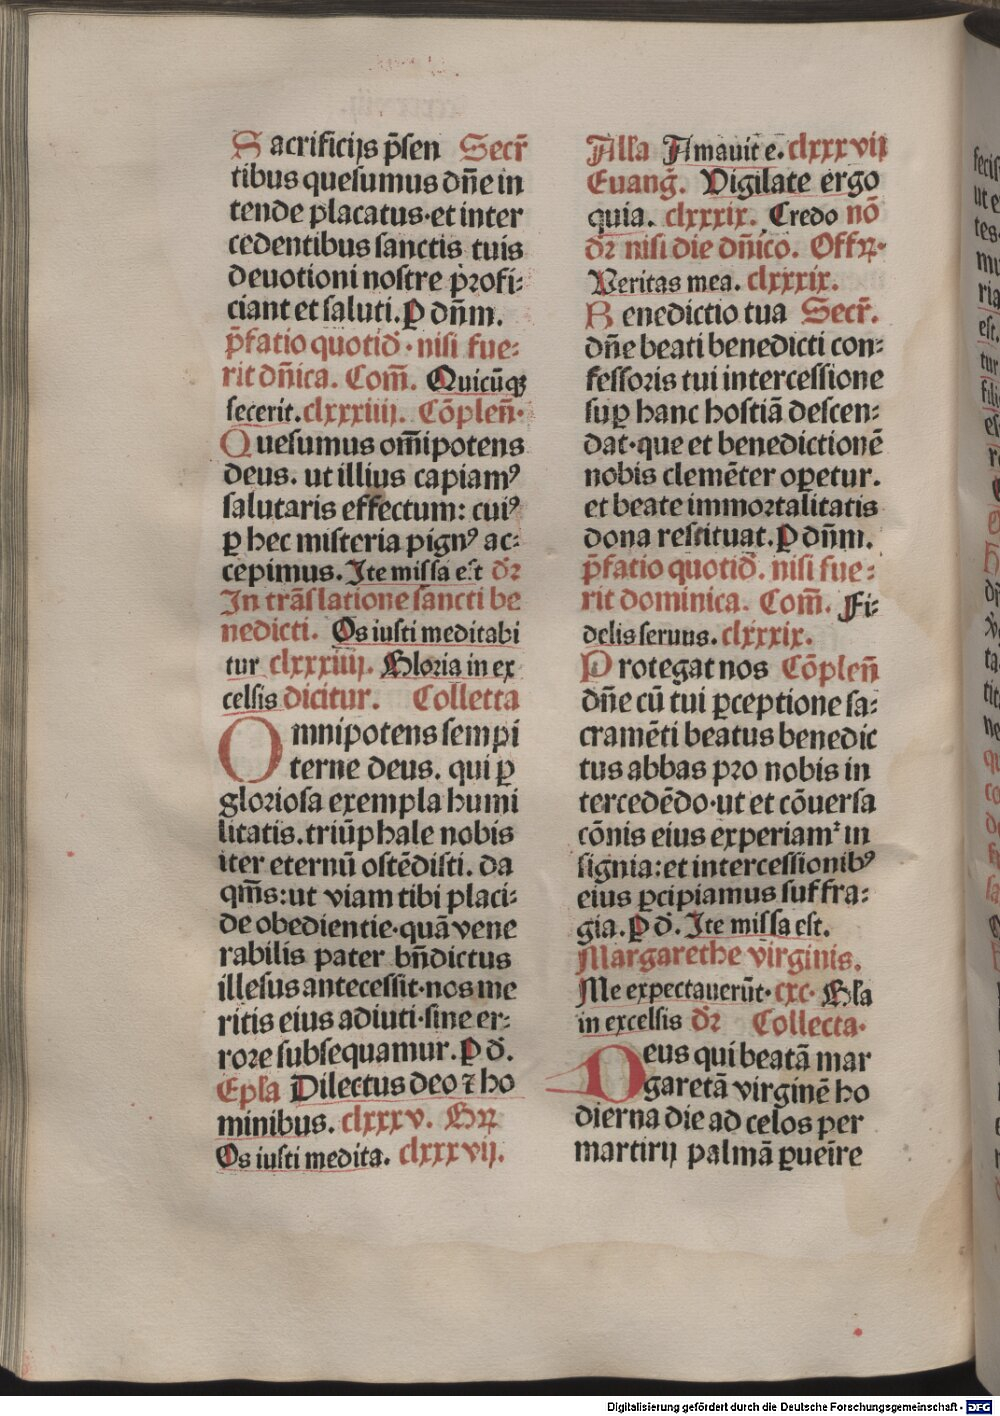 Sacrificijs p̄sen Secr̄
tibus quesumus dn̄e in
tende placatus·et inter
cedentibus sanctis tuis
deuotioni nostre profi⸗
ciant et saluti.ꝑ dn̄m.
p̄fatio quotid̄·nisi fue⸗
rit dn̄ica. Com̄. Quicūqꝫ
fecerit.clxxxiiij. Cōplen̄·
Quesumus om̄ipotens
deus. ut illius capiamꝰ
salutaris effectum: cuiꝰ
ꝑ hec misteria pignꝰ ac⸗
cepimus. Ite missa est dr̄
In trāslatione sancti be
nedicti. Os iusti meditabi
tur clxxxiiij. Gloria in ex
celsis dicitur. Collecta
Omnipotens sempi
terne deus. qui ꝑ
gloriosa exempla humi
litatis.triūphale nobis
iter eternū ostēdisti. da
qm̄s:ut viam tibi placi⸗
de obedientie·quā vene
rabilis pater bn̄dictus
illesus antecessit·nos me
ritis eius adiuti·sine er⸗
rore subsequamur.ꝑ d̄.
Ep̄la Dilectus deo ⁊ ho
minibus. clxxxv. Gꝝ
Os iusti medita. clxxxvij.
Alla Amauit e. clxxxvij
Euanḡ. Vigilate ergo
quia. clxxxix. Credo nō
dr̄ nisi die dn̄ico. Offꝝ·
Veritas mea. clxxxix.
Benedictio tua Secr̄.
dn̄e beati benedicti con⸗
fessoris tui intercessione
suꝑ hanc hostiā descen⸗
dat·que et benedictionē
nobis clemēter oꝑetur.
et beate immortalitatis
dona restituat.ꝑ dn̄m.
p̄fatio quotid̄. nisi fue⸗
rit dominica. Com̄. Fi⸗
delis seruus. clxxxix.
Protegat nos Cōplen̄
dn̄e cū tui ꝑceptione sa⸗
cramēti beatus benedic
tus abbas pro nobis in
tercedēdo·ut et cōuersa
cōnis eius experiam᷑ in
signia:et intercessionibꝰ
eius ꝑcipiamus suffra⸗
gia.ꝑ d̄. Ite missa est.
Margarethe virginis.
Me expectauerūt·cxc· Gl̄a
in excelsis dr̄ Collecta·
Deus qui beatā mar
garetā virginē ho
dierna die ad celos per
martirij palmā ꝑueīre
Digitalisierung gefördert durch die Deutsche Forschungsgemeinschaft - DFG